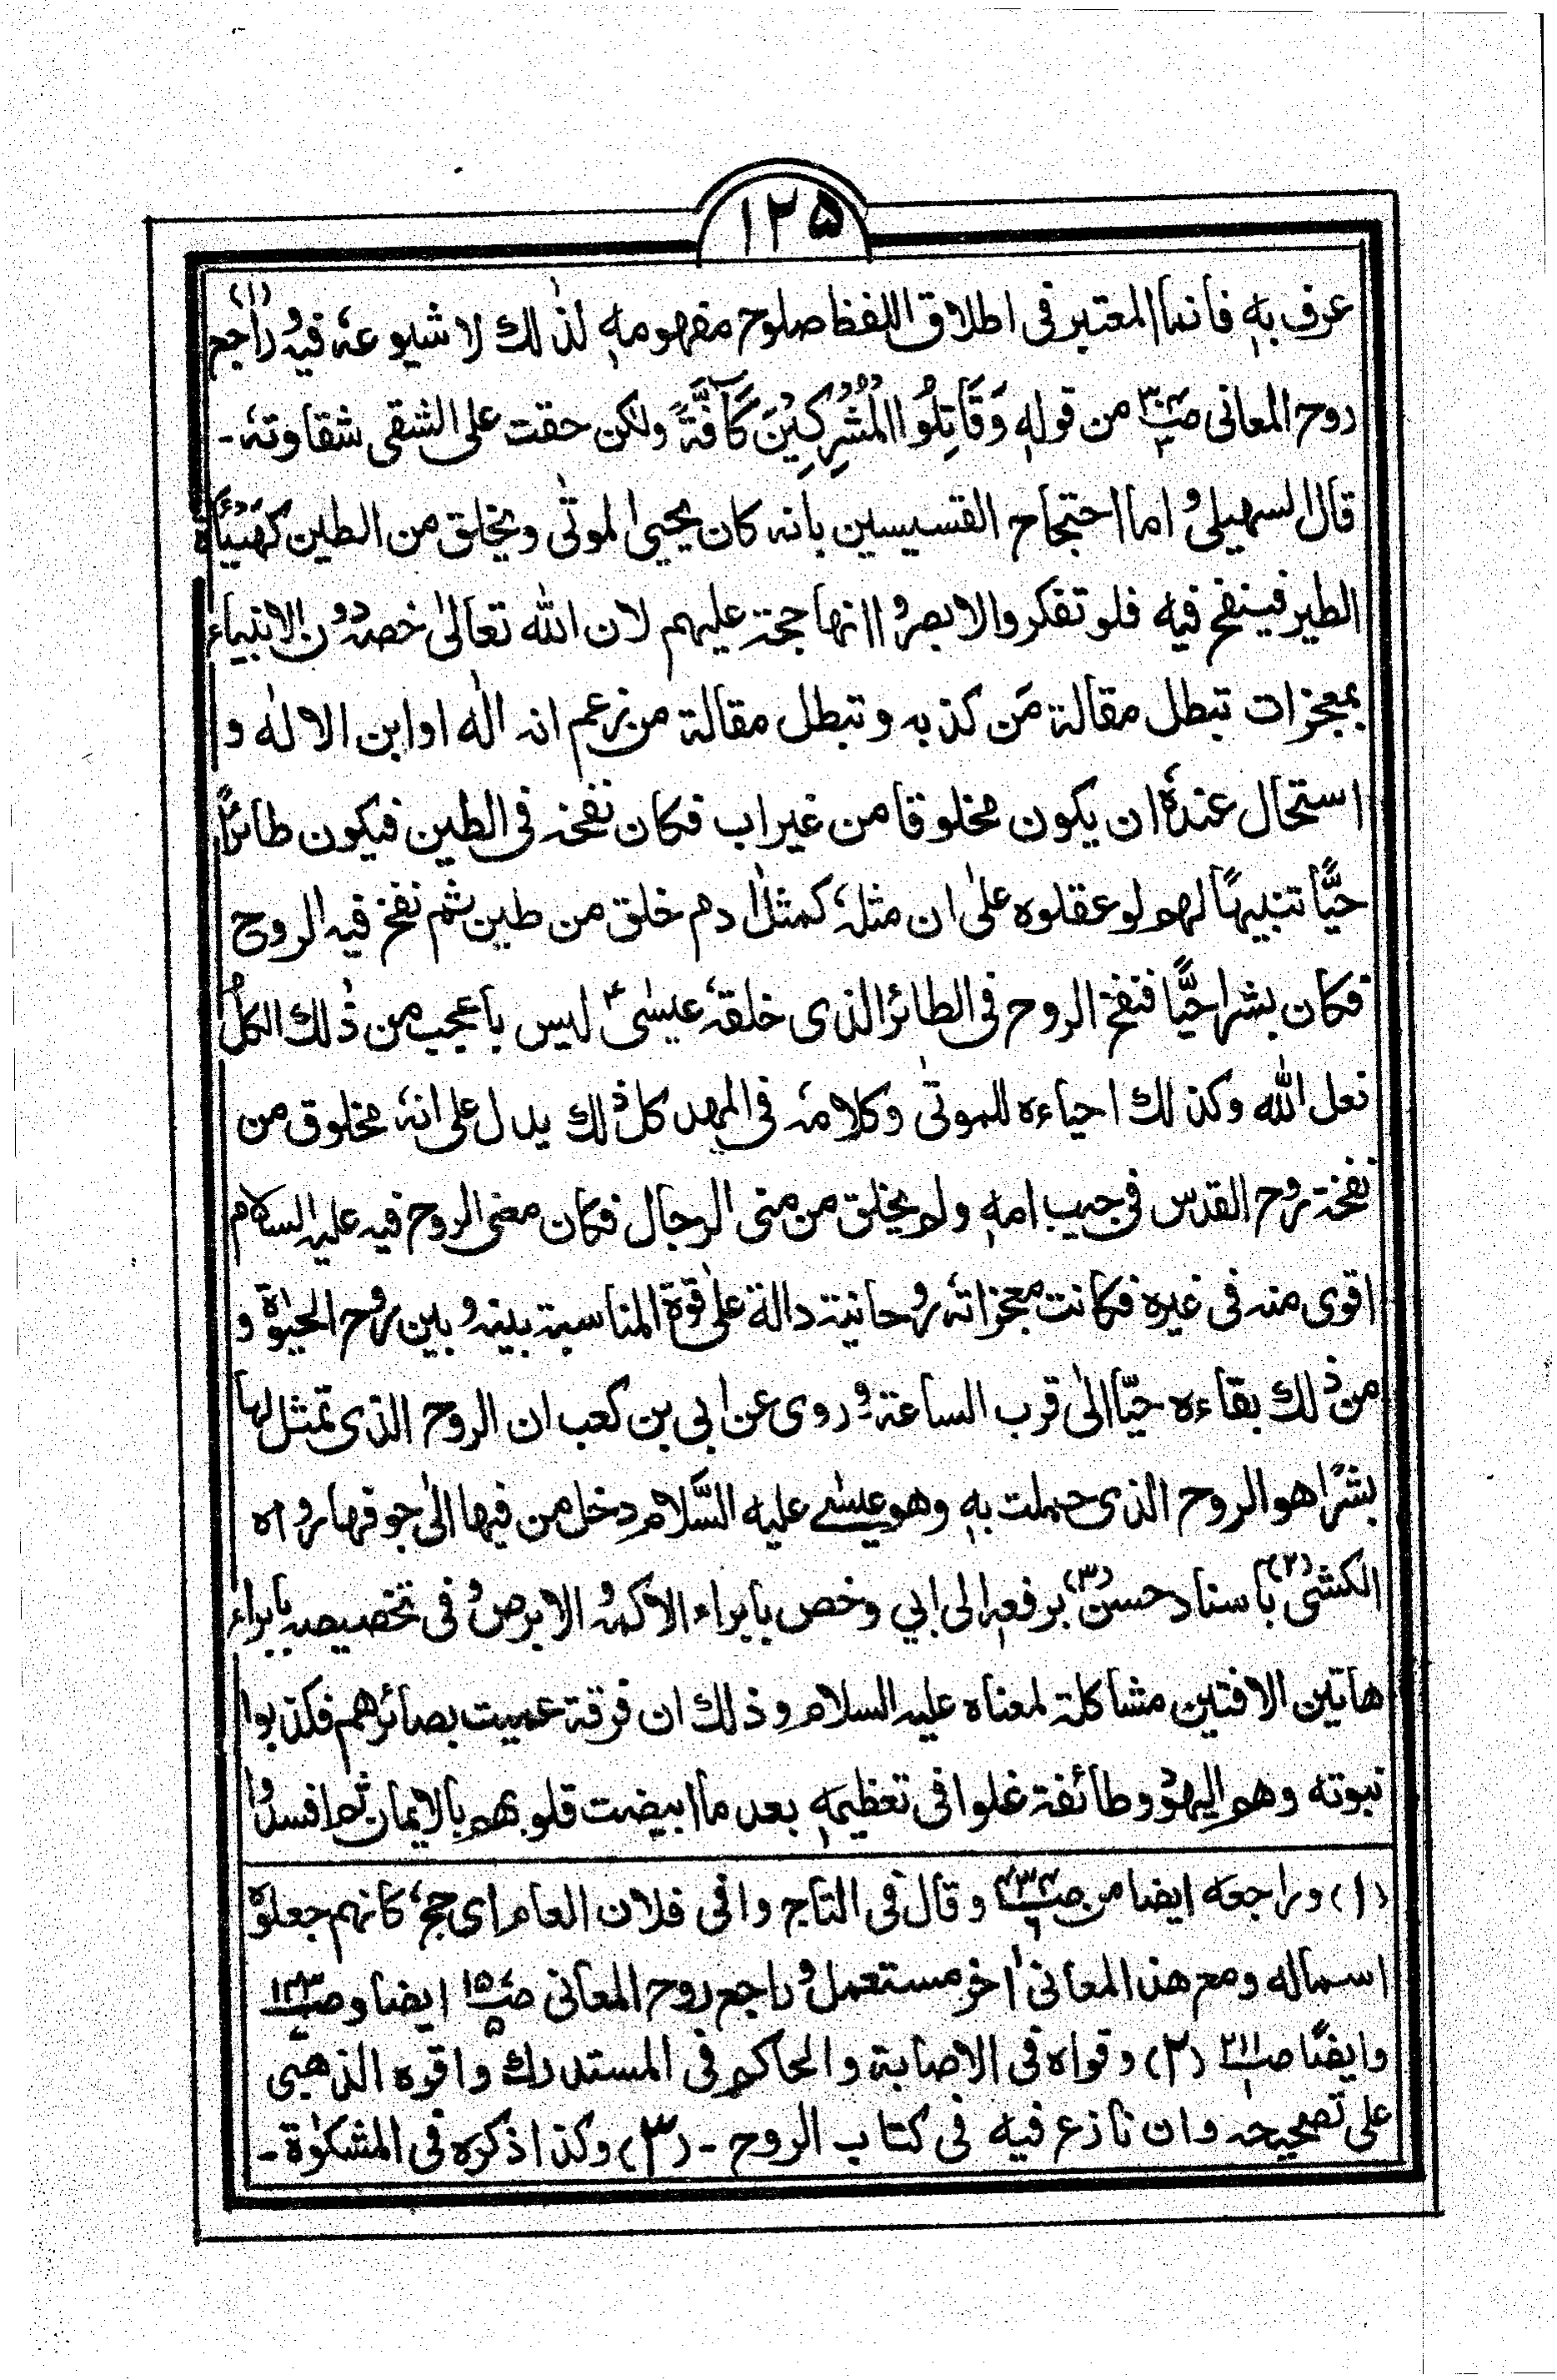 ۱۲۵
عرف بہٖ فانما المعتبر فی اطلاق اللفظ صلوح مفهومہٖ لذٰلك لا شیوعہٗ فیہ وراجع (۱)
روح المعانی من قولہٖ وَقَاتِلُوا الْمُشْرِكِیْنَ كَآفَّةً ولٰكن حقت علی الشقی شقاوتہٗ۔
قال السهیلی واما احتجاج القسیسین بانہ كان یحیی الموتٰی ویخلق من الطین كَهَیْئَة
الطیر فینفخ فیه فلو تفكروا لابصروا انها حجة علیهم لان الله تعالیٰ خصہ دون الانبیاء
بمعجزات تبطل مقالة مَن كذبہ وتبطل مقالة من زعم انہ الٰہ او ابن الالٰہ و
استحال عندہٗ ان یكون مخلوقا من غیر اب فكان نفخہ فی الطین فیكون طائرًا
حیًّا تنبیهًا لهم لو عقلوہ علیٰ ان مثلہٗ كمثل اٰدم خلق من طین ثم نفخ فیہ الروح
فكان بشرا حیًّا فنفخ الروح فی الطائر الذی خلقہٗ عیسٰیؑ لیس باعجب من ذٰلك الكلُ
فعل الله وكذلك احیاءہ للموتٰی وكلامہٗ فی المهد كل ذٰلك یدل علی انہٗ مخلوق من
نفخة روح القدس فی جیب امہٖ ولم یخلق من منی الرجال فكان معنی الروح فیہ علیہ السلام
اقوی منہ فی غیرہ فكانت معجزاتہٗ روحانیة دالة علیٰ قوة المناسبة بینہ وبین روح الحیٰوة و
من ذٰلك بقاءہ حیّا الیٰ قرب الساعة وروی عن ابی بن كعب ان الروح الذی تمثل لها
بشرًا هو الروح الذی حملت بہٖ وهو عیسٰے علیه السَّلام دخل من فیها الیٰ جوفها رواہ
الكشی (۲) باسناد حسن (۳) یرفعہٖ الی ابی وخص بابراء الاكمہ والابرص وفی تخصیصہ بابراء
هاتین الافتین مشاكلة لمعناہ علیہ السلام وذلك ان فرقة عمیت بصائرهم فكذبوا
نبوتہ وهم الیهود وطائفة غلوا فی تعظیمہٖ بعد ما ابیضت قلوبهم بالایمان ثم افسدوا
(۱) وراجعہ ایضا من وقال فی التاج وافی فلان العام ای حجؐ كانهم جعلوہ
اسماله ومع هذا المعانی اٰخر مستعمل وراجع روح المعانی ایضا و
وایضًا (۲) وقواہ فی الاصابة والحاكم فی المستدرك واقرہ الذهبی
علی تصحیحہ وان نازع فیه فی كتاب الروح ۔ (۳) وكذا ذكرہ فی المشكوٰة۔